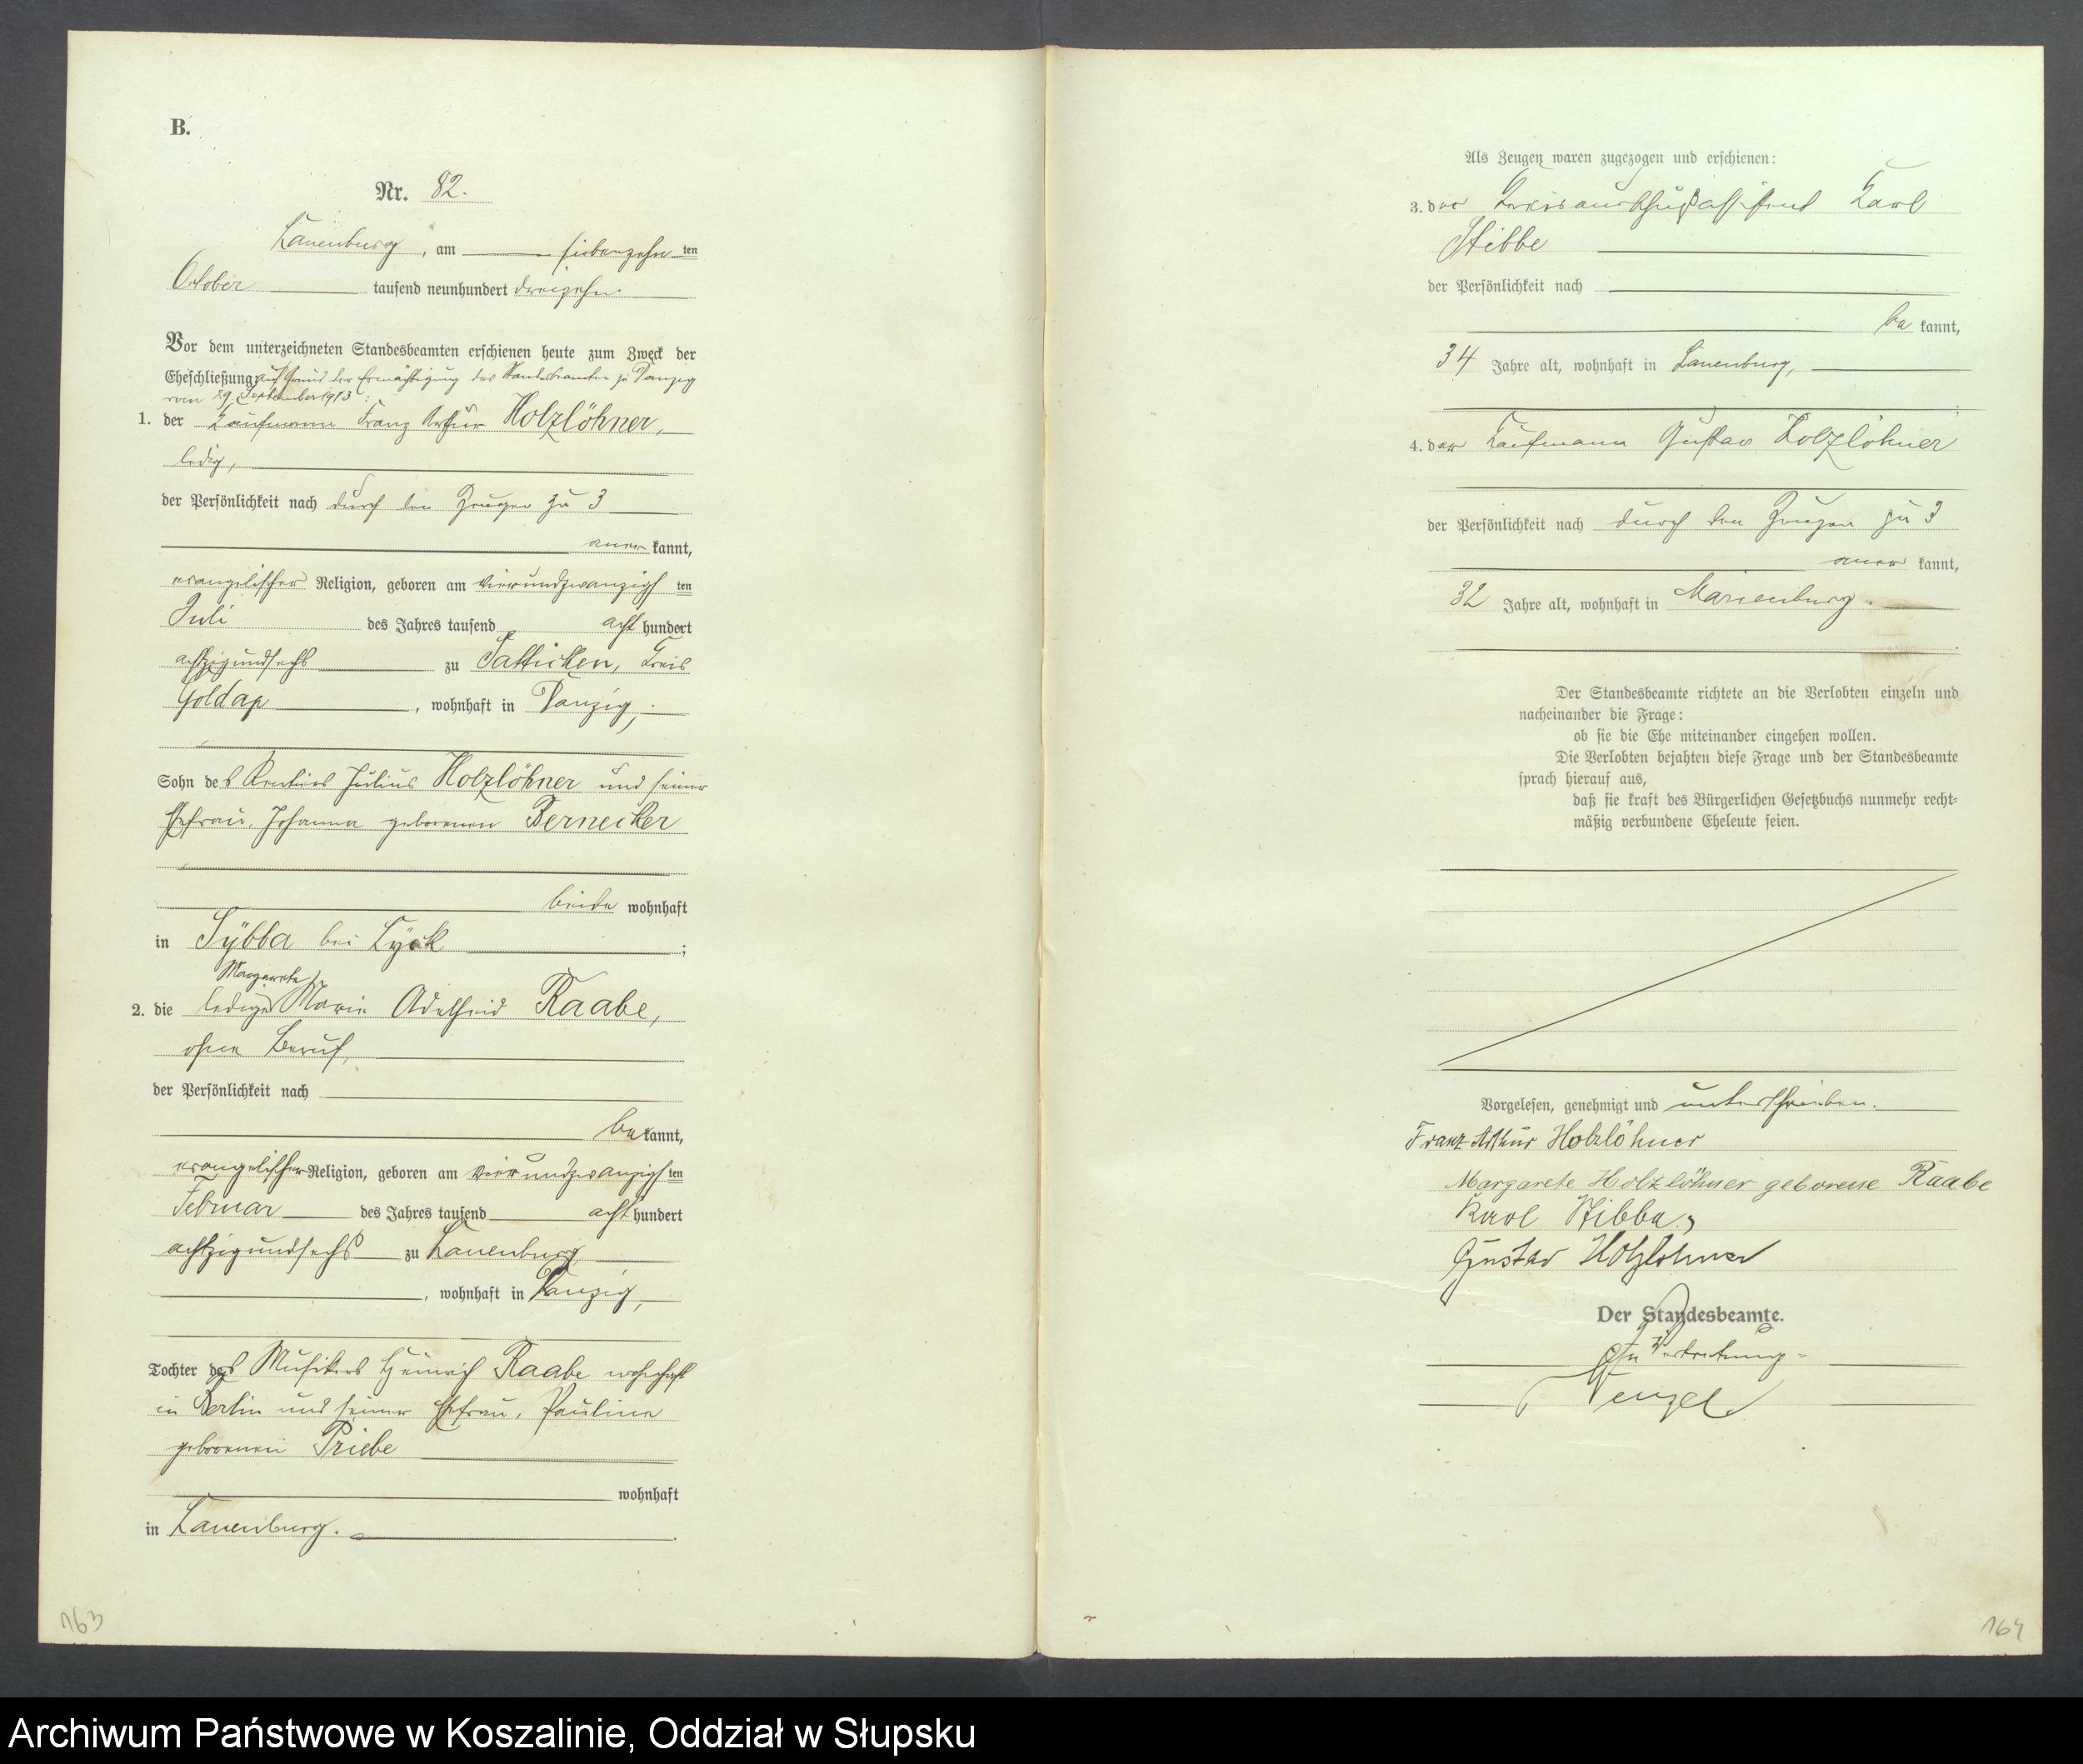 B.
Nr. 82.
Lauenburg, am siebenzehnten
October tausend neunhundert dreizehn
Vor dem unterzeichneten Standesbeamten erschienen heute zum Zweck der
Eheschließung auf Grund der Ermächtigung des Standesbeamten zu Danzig
vom 29. September 1913:
1. der Kaufmann Franz Arthur Holzlöhner,
ledig,
der Persönlichkeit nach durch den Zeugen zu 3
anerkannt,
evangelischer Religion, geboren am vierundzwanzigsten
Juli des Jahres tausend achthundert
achtzigundsechs zu Tatticken, Kreis
Goldap, wohnhaft in Danzig,
Sohn des Rentiers Julius Holzlöhner und seiner
Ehefrau, Johanna geborenen Bernecker
beide wohnhaft
in Sybba bei Lyck;
Margarete
2. die ledige Marie Adelheid Raabe,
ohne Beruf,
der Persönlichkeit nach
bekannt,
evangelischer Religion, geboren am vierundzwanzigsten
Februar des Jahres tausend achthundert
achtzigundsechs zu Lauenburg
, wohnhaft in Danzig,
Tochter des Musikers Heinrich Raabe wohnhaft
in Berlin und seiner Ehefrau, Pauline
geborenen Priebe
wohnhaft
in Lauenburg.
163
Als Zeugen waren zugezogen und erschienen:
3. der Kreisausschußassistent Karl
Stibbe
der Persönlichkeit nach
bekannt,
34 Jahre alt, wohnhaft in Lauenburg,
4. der Kaufmann Gustav Holzlöhner
der Persönlichkeit nach durch den Zeugen zu 3
anerkannt,
32 Jahre alt, wohnhaft in Marienburg.
Der Standesbeamte richtete an die Verlobten einzeln und
nacheinander die Frage:
ob sie die Ehe miteinander eingehen wollen.
Die Verlobten bejahten diese Frage und der Standesbeamte
sprach hierauf aus,
daß sie kraft des Bürgerlichen Gesetzbuchs nunmehr recht-
mäßig verbundene Eheleute seien.
Vorgelesen, genehmigt und unterschrieben.
Franz Arthur Holzlöhner
Margarete Holzlöhner geborene Raabe
Karl Stibbe,
Gustav Holzlöhner
Der Standesbeamte.
In Vertretung
Wenzel
164
Archiwum Państwowe w Koszalinie, Oddział w Słupsku